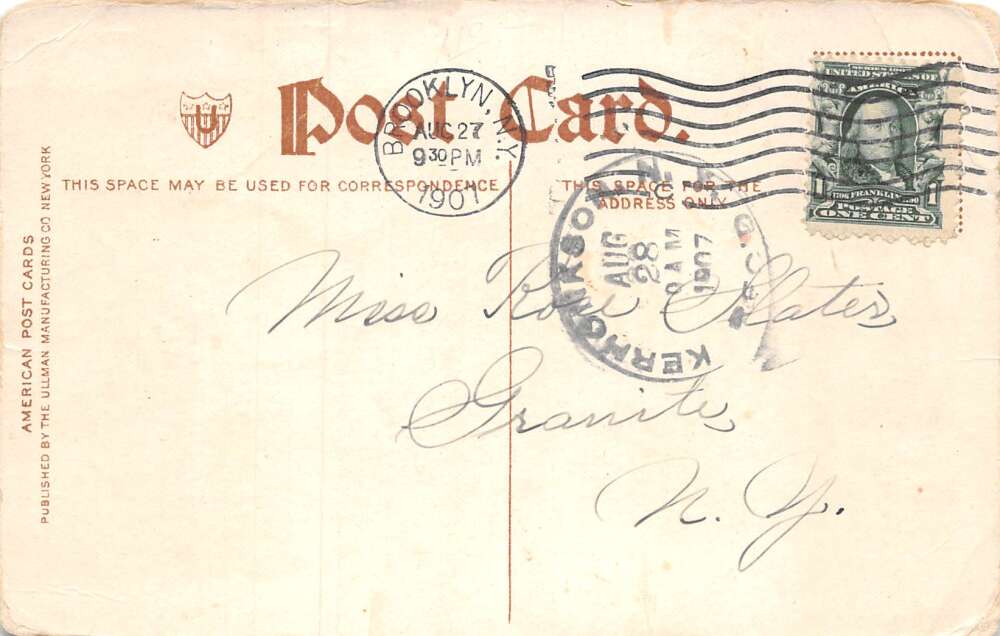 Post Card.
U
BROOKLYN, N.Y.
AUG 27
9 30 PM
1907
SERIES 1902
UNITED STATES OF
AMERICA
1706 FRANKLIN 1790
POSTAGE
1 ONE CENT 1
THIS SPACE MAY BE USED FOR CORRESPONDENCE
THIS SPACE FOR THE
ADDRESS ONLY
KERHONKSON N.Y.
REC'D.
AUG
28
AM
1907
Miss Rose Slater,
Granite,
N. Y.
AMERICAN POST CARDS
PUBLISHED BY THE ULLMAN MANUFACTURING CO NEW YORK